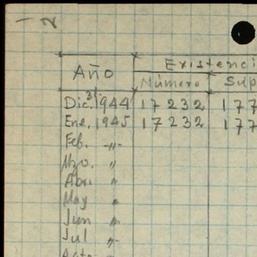 1/2
Existenci
Año
Número Sup
Dic.31 1944 17232 177
Ene. 1945 17232 177
Feb. -"-
Mzo. "
Abri. "
May "
Jun "
Jul "